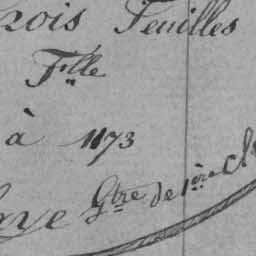 rois Feuilles
Fᵗˡˡᵉ
à 1173
aye Gᵗʳᵉ de 1ᵉʳᵉ cl